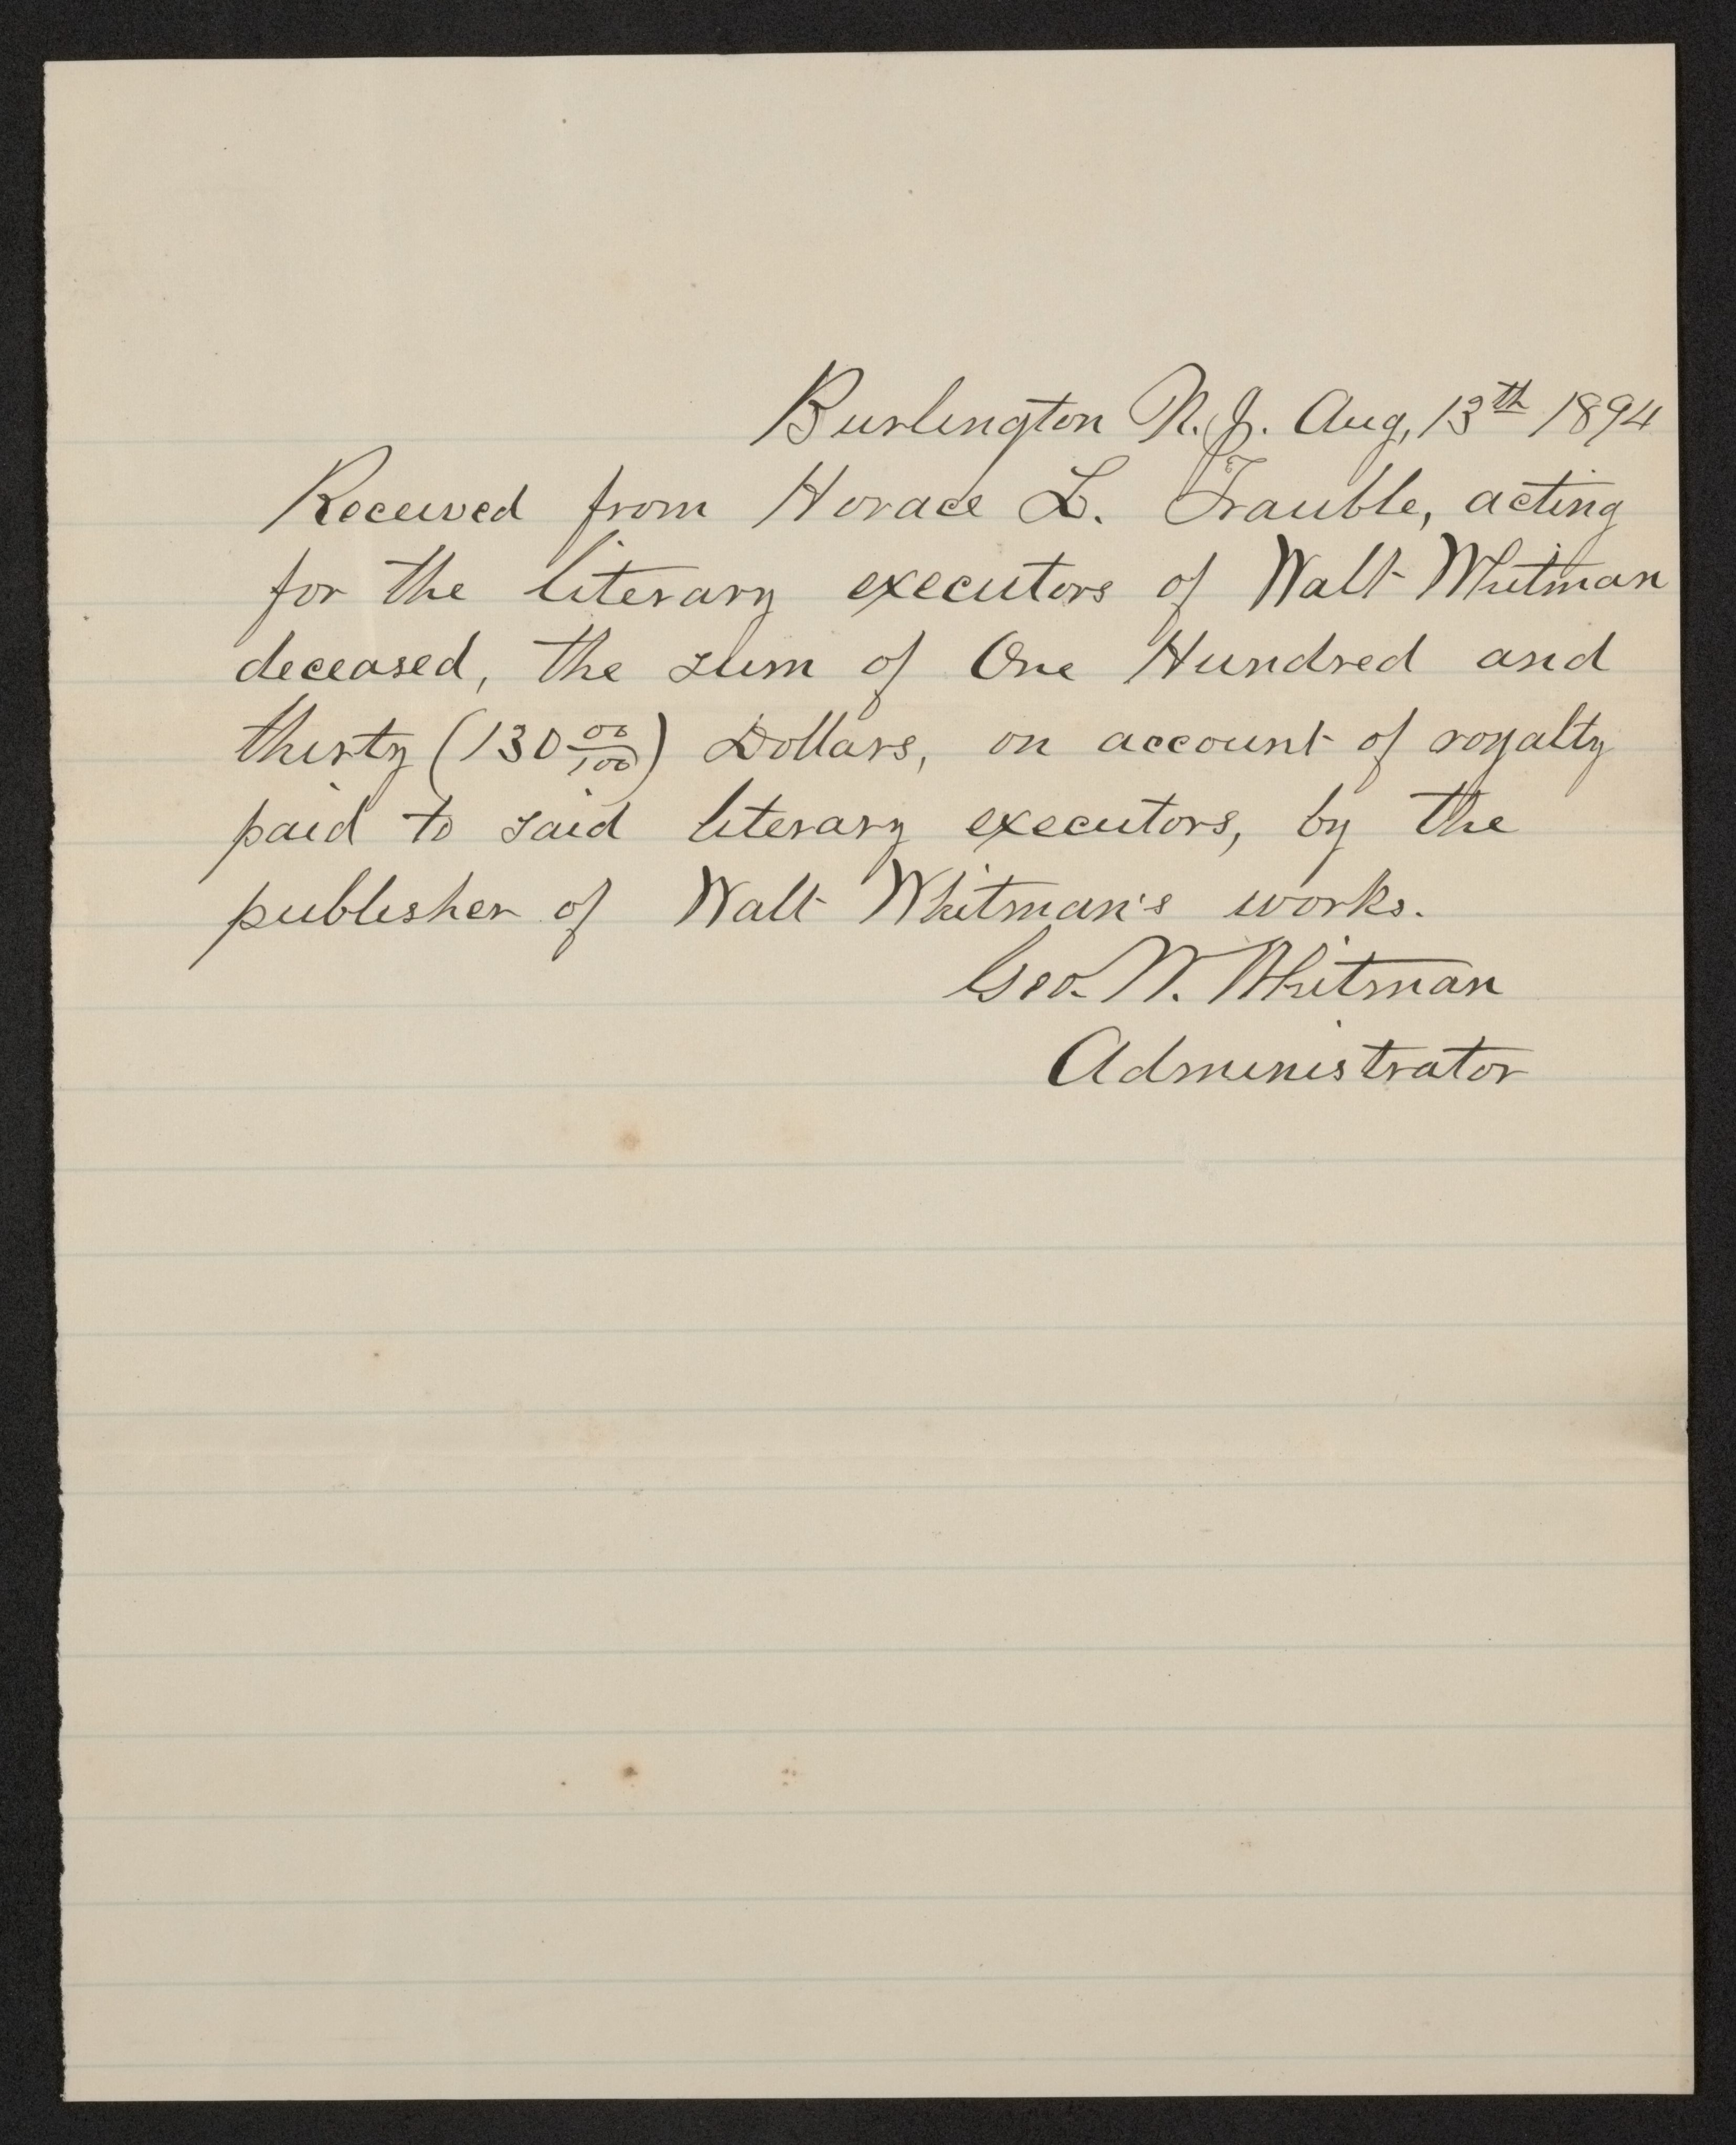 Burlington N.J. Aug, 13th 1894
Received from Horace L. Trauble, acting
for the literary executors of Walt Whitman
deceased, the sum of One Hundred and
thirty (130 00/100) Dollars, on account of royalty
paid to said literary executors, by the
publisher of Walt Whitman's works.
Geo. W. Whitman
Administrator